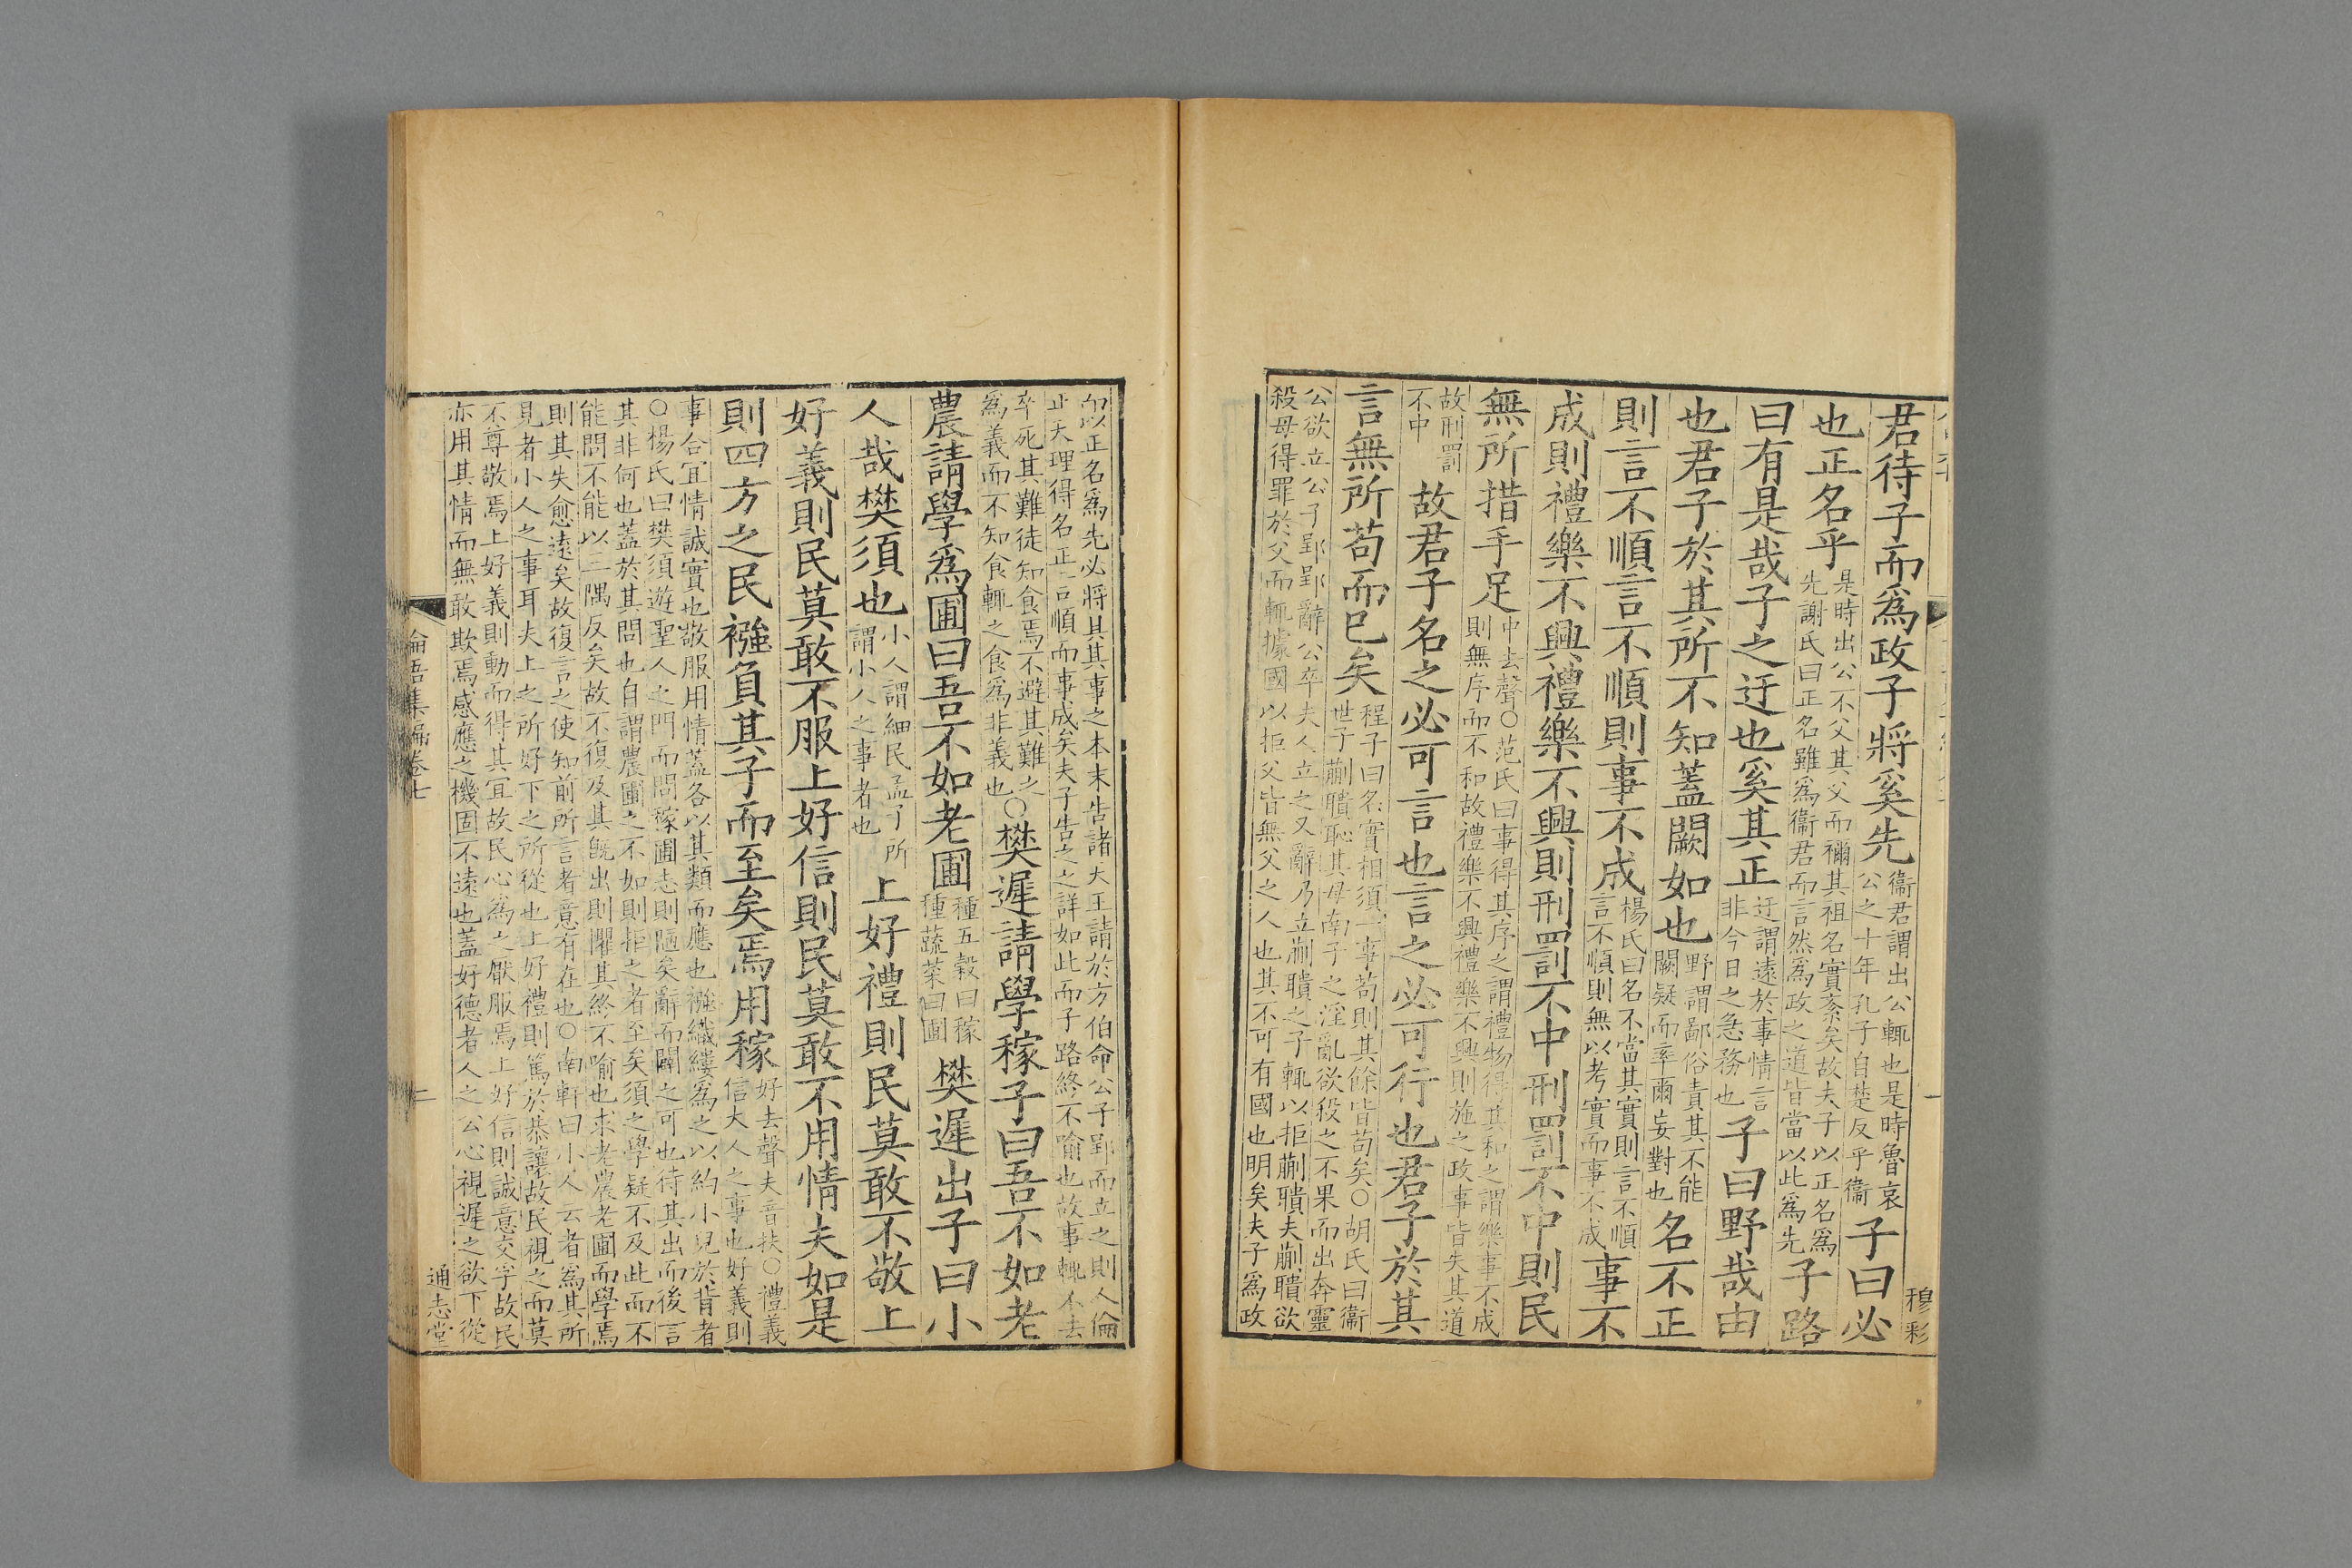 穆彩
君待子而爲政子將奚先衞君謂出公輒也是時魯哀公之十年孔子自楚反乎衞子曰必
也正名乎是時出公不父其父而禰其祖名實紊矣故夫子以正名爲先謝氏曰正名雖爲衞君而言然爲政之道皆當以此爲先子路
曰有是哉子之迂也奚其正迂謂遠於事情言非今日之急務也子曰野哉由
也君子於其所不知蓋闕如也野謂鄙俗責其不能闕疑而率爾妄對也名不正
則言不順言不順則事不成楊氏曰名不當其實則言不順言不順則無以考實而事不成事不
成則禮樂不興禮樂不興則刑罰不中刑罰不中則民
無所措手足中去聲○范氏曰事得其序之謂禮物得其和之謂樂事不成則無序而不和故禮樂不興禮樂不興則施之政事皆失其道
故刑罰不中故君子名之必可言也言之必可行也君子於其
言無所苟而已矣程子曰名實相須一事苟則其餘皆苟矣○胡氏曰衞世子蒯聵恥其母南子之淫亂欲殺之不果而出奔靈
公欲立公子郢郢辭公卒夫人立之又辭乃立蒯聵之子輒以拒蒯聵夫蒯聵欲
殺母得罪於父而輒據國以拒父皆無父之人也其不可有國也明矣夫子爲政
而以正名爲先必將具其事之本末告諸天王請於方伯命公子郢而立之則人倫
正天理得名正言順而事成矣夫子告之之詳如此而子路終不喻也故事輒不去
卒死其難徒知食焉不避其難之
爲義而不知食輒之食爲非義也○樊遲請學稼子曰吾不如老
農請學爲圃曰吾不如老圃種五穀曰稼種蔬菜曰圃樊遲出子曰小
人哉樊須也小人謂細民孟子所謂小人之事者也上好禮則民莫敢不敬上
好義則民莫敢不服上好信則民莫敢不用情夫如是
則四方之民襁負其子而至矣焉用稼好去聲夫音扶○禮義信大人之事也好義則
事合宜情誠實也敬服用情蓋各以其類而應也襁織縷爲之以約小兒於背者
○楊氏曰樊須遊聖人之門而問稼圃志則陋矣辭而闢之可也待其出而後言
其非何也蓋於其問也自謂農圃之不如則拒之者至矣須之學疑不及此而不
能問不能以三隅反矣故不復及其既出則懼其終不喻也求老農老圃而學焉
則其失愈遠矣故復言之使知前所言者意有在也○南軒曰小人云者爲其所
見者小人之事耳夫上之所好下之所從也上好禮則篤於恭讓故民視之而莫
不尊敬焉上好義則動而得其宜故民心爲之厭服焉上好信則誠意交孚故民
亦用其情而無敢欺焉感應之機固不遠也蓋好德者人之公心視遲之欲下從
論語集編卷七
二
通志堂